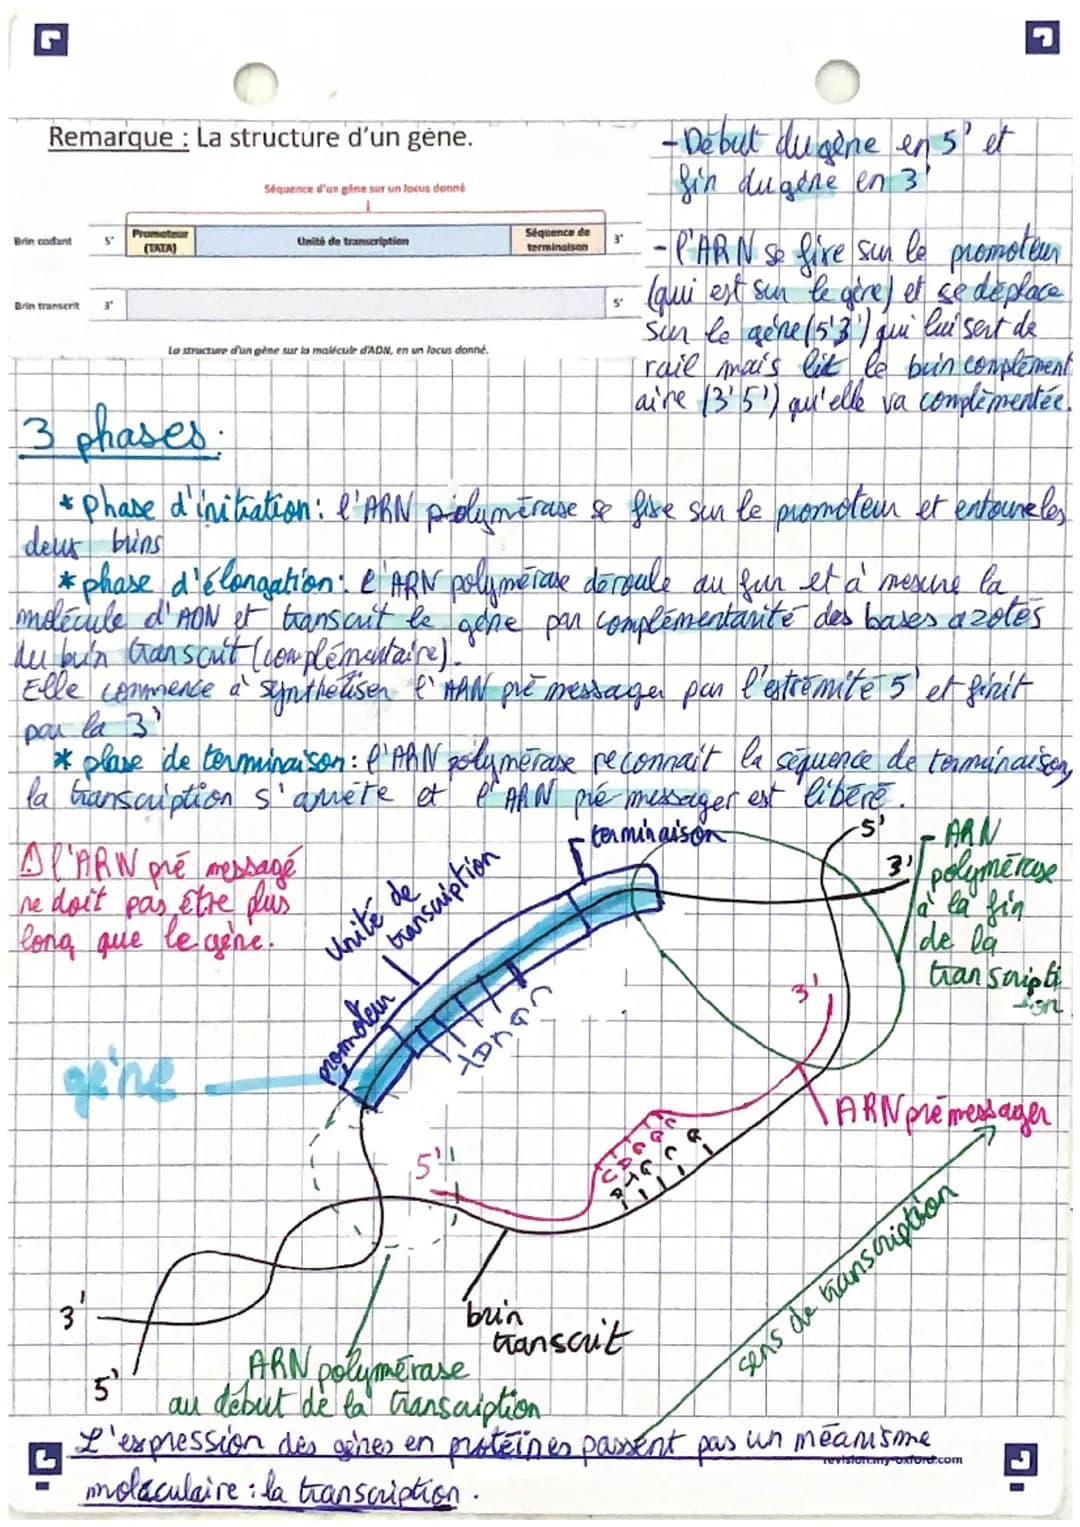 Remarque : La structure d'un gène.
Séquence d'un gène sur un locus donné
Brin codant 5' Promoteur (TATA) Unité de transcription Séquence de terminaison 3'
Brin transcrit 3' 5'
La structure d'un gène sur la molécule d'ADN, en un locus donné.
- Début du gène en 5' et
fin du gène en 3'
- l'ARN se fixe sur le promoteur
(qui est sur le gène) et se déplace
sur le gène (5'3') qui lui sert de
rail mais lit le brin complément
aire (3'5') qu'elle va complémentée.
3 phases :
* phase d'initiation : l'ARN polymérase se fixe sur le promoteur et entoure les
deux brins
* phase d'élongation : l'ARN polymérase déroule au fur et à mesure la
molécule d'ADN et transcrit le gène par complémentarité des bases azotés
du brin transcrit (complémentaire).
Elle commence à synthétiser l'ARN pré messager par l'extrémité 5' et finit
par la 3'
* phase de terminaison : l'ARN polymérase reconnait la séquence de terminaison,
la transcription s'arrête et l'ARN pré-messager est libéré.
⚠ l'ARN pré messagé
ne doit pas être plus
long que le gène.
terminaison
Unité de
transcription
promoteur
gène
5'
3'
ARN
polymérase
à la fin
de la
transcripti
-on
3'
ARN pré messager
5'
brin
transcrit
sens de transcription
3'
5'
ARN polymérase
au début de la transcription
L'expression des gènes en protéines passent pas un méanisme
revision.my-oxford.com
moláculaire : la transcription.